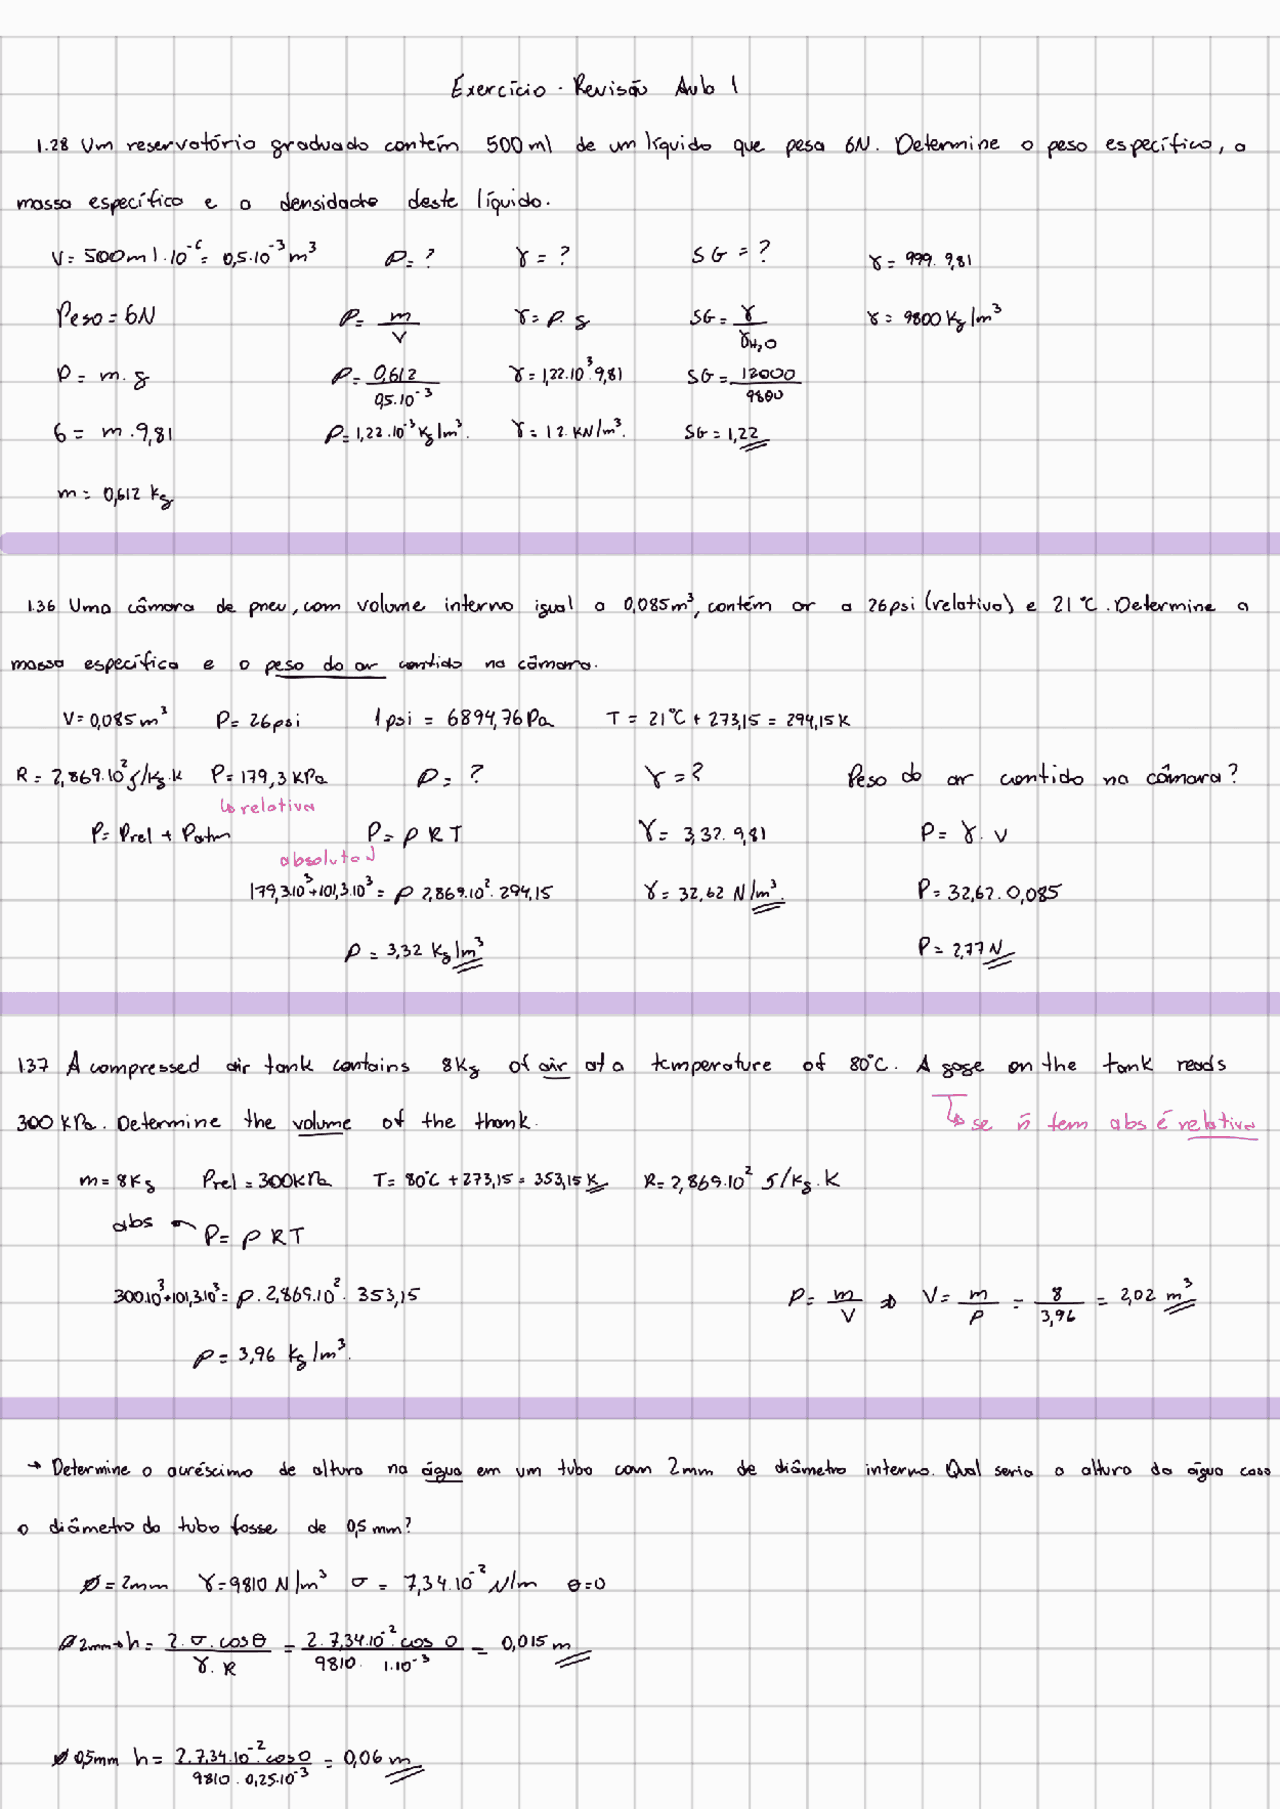 Exercício - Revisão Aula 1
1.28 Um reservatório graduado contém 500 ml de um líquido que pesa 6N. Determine o peso específico, a
massa específica e a densidade deste líquido.
V = 500ml.10⁻⁶ = 0,5.10⁻³ m³ ρ = ? γ = ? SG = ? γ = 999.9,81
Peso = 6N ρ = m/V γ = ρ.g SG = γ/γH₂O γ = 9800 Kg/m³
P = m.g ρ = 0,612/0,5.10⁻³ γ = 1,22.10³.9,81 SG = 12000/9800
6 = m.9,81 ρ = 1,22.10⁻³ Kg/m³. γ = 12.KN/m³. SG = 1,22
m = 0,612 Kg
1.36 Uma câmara de pneu, com volume interno igual a 0,085m³, contém ar a 26psi (relativo) e 21°C. Determine a
massa específica e o peso do ar contido na câmara.
V = 0,085m³ P = 26psi 1 psi = 6894,76 Pa T = 21°C + 273,15 = 294,15K
R = 2,869.10² J/Kg.K P = 179,3 KPa ρ = ? γ = ? Peso do ar contido na câmara?
↳ relativa
P = Prel + Patm P = ρ R T γ = 3,32.9,81 P = γ.V
absoluta
179,3.10³+101,3.10³ = ρ 2,869.10².294,15 γ = 32,62 N/m³. P = 32,62.0,085
ρ = 3,32 Kg/m³ P = 2,77 N
1.37 A compressed air tank contains 8Kg of air at a temperature of 80°C. A gage on the tank reads
300 KPa. Determine the volume of the thank. ↳ se ñ tem abs é relativa
m = 8Kg Prel = 300KPa T = 80°C + 273,15 = 353,15 K R = 2,869.10² J/Kg.K
abs P = ρ R T
300.10³+101,3.10³ = ρ.2,869.10².353,15 ρ = m/V ⇒ V = m/ρ = 8/3,96 = 2,02 m³
ρ = 3,96 Kg/m³.
→ Determine o acréscimo de altura na água em um tubo com 2mm de diâmetro interno. Qual seria a altura da água caso
o diâmetro do tubo fosse de 0,5 mm?
ø = 2mm γ = 9810 N/m³ σ = 7,34.10⁻² N/m θ = 0
ø 2mm → h = 2.σ.cosθ/γ.R = 2.7,34.10⁻².cos 0/9810.1.10⁻³ = 0,015 m
ø 0,5mm h = 2.7,34.10⁻².cos0/9810.0,25.10⁻³ = 0,06 m